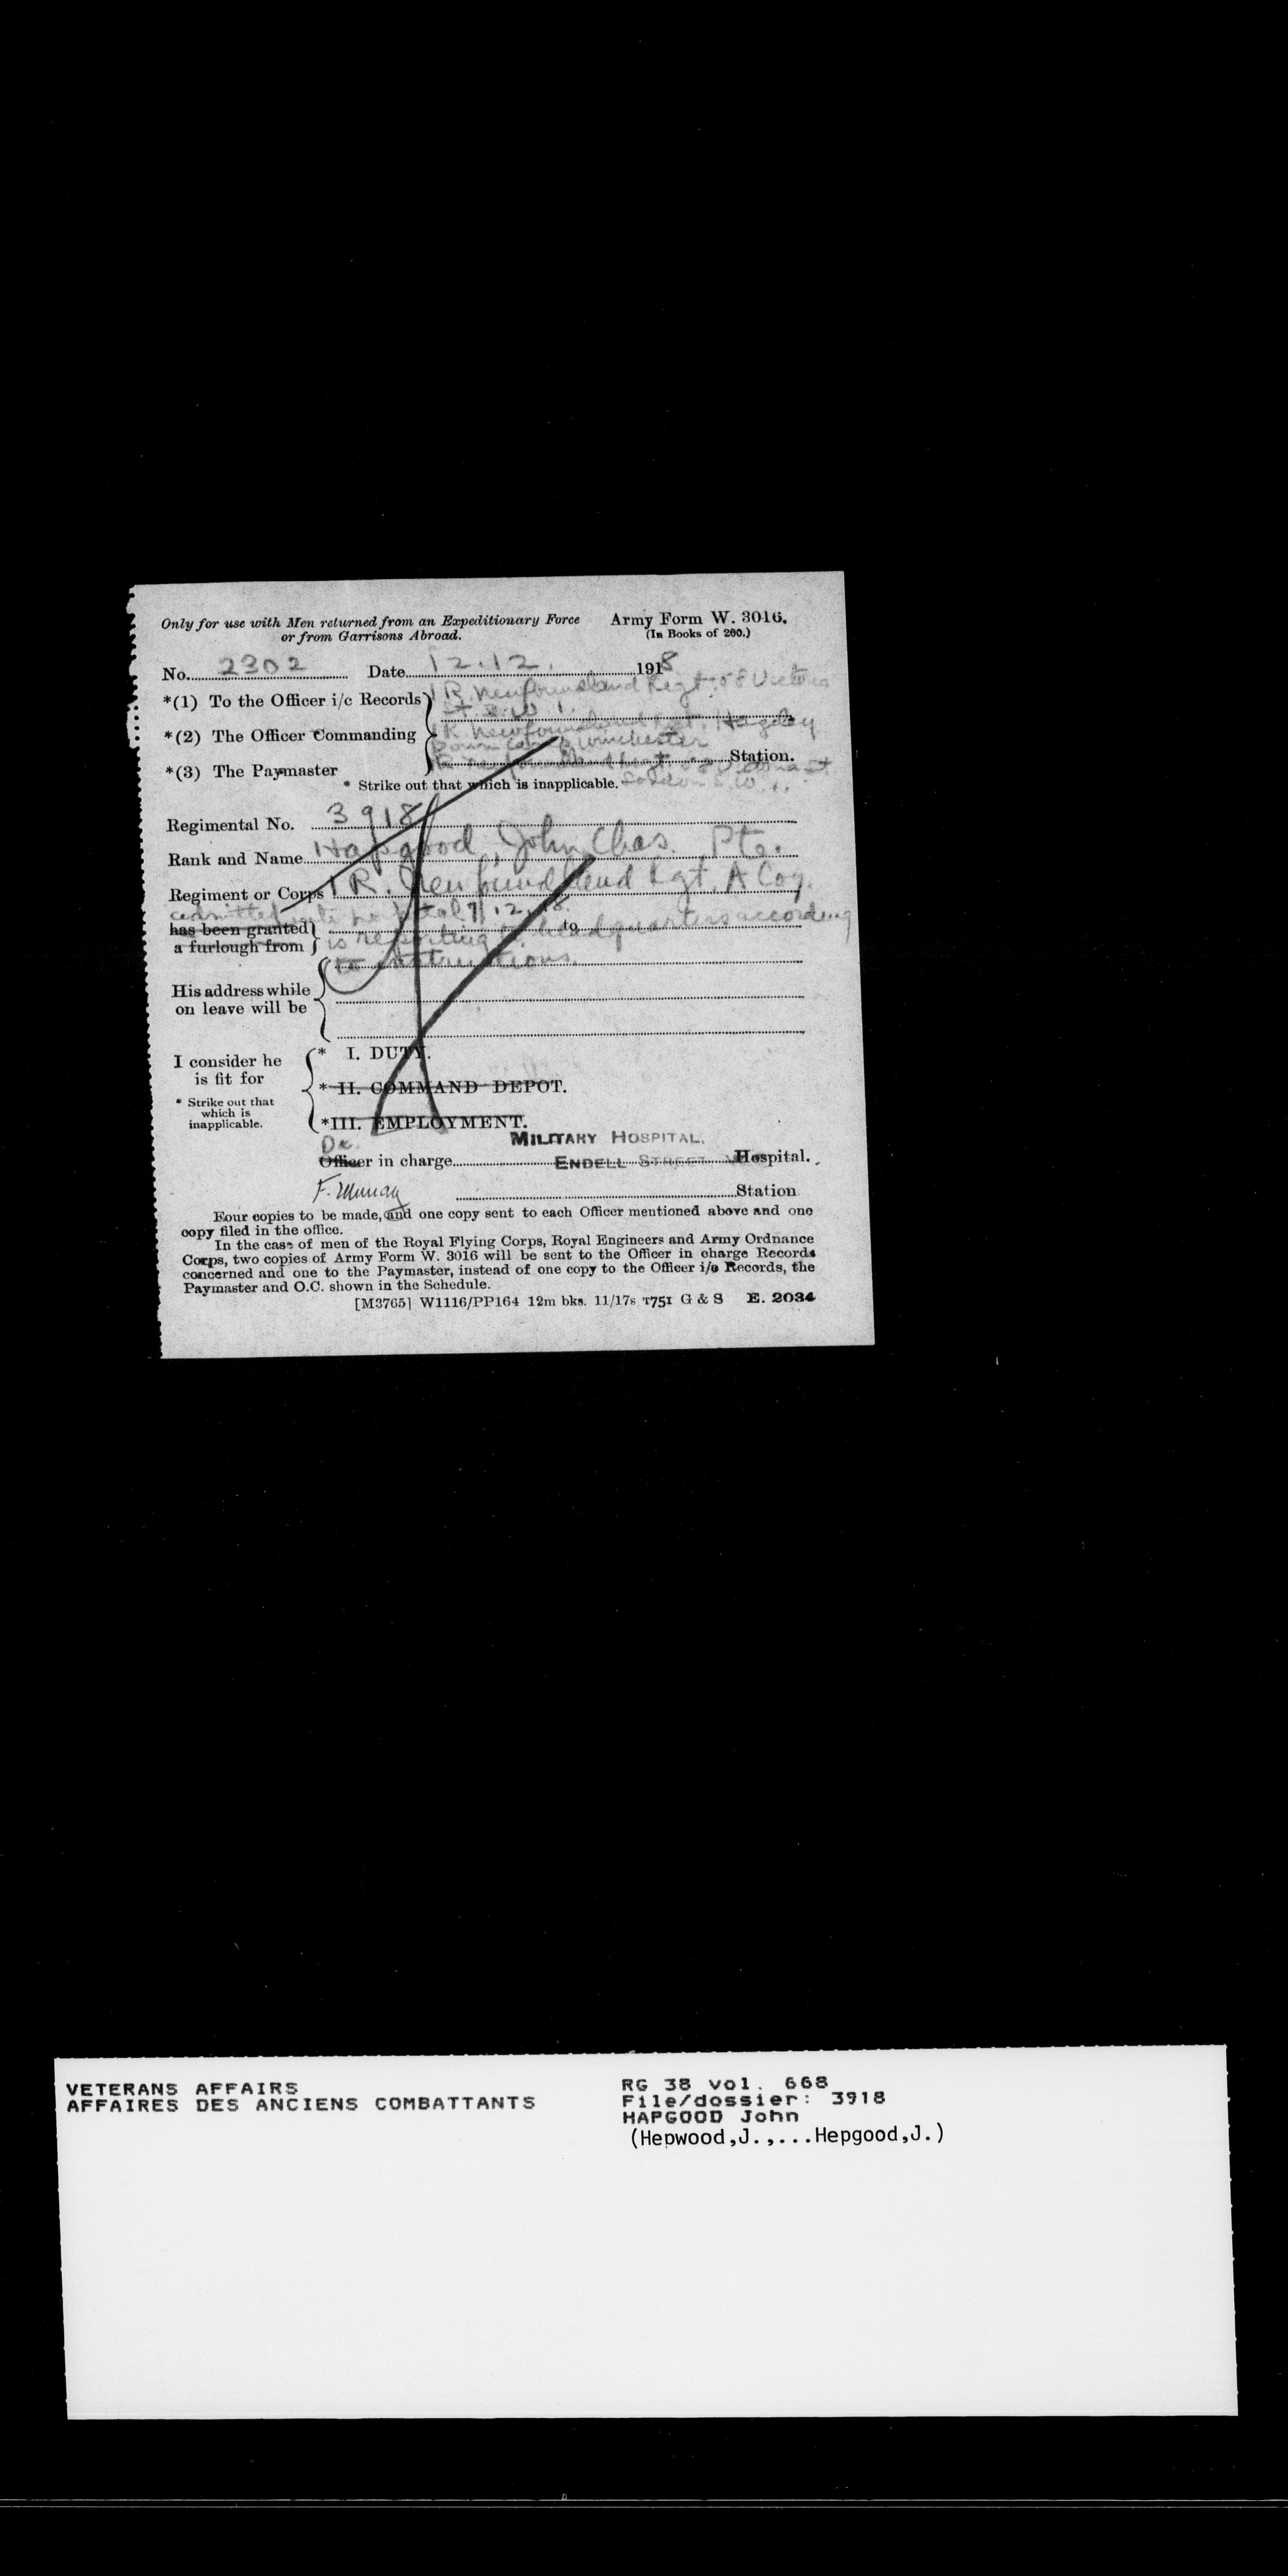 Only for use with Men returned from an Expeditionary Force
or from Garrisons Abroad.
Army Form W. 3016.
(In Books of 200.)
No. 2302 Date 12.12. 1918
*(1) To the Officer i/c Records
1 R. Newfoundland Regt. 58 Victoria
St. S.W.1.
*(2) The Officer Commanding
1 R. Newfoundland Rgt. Hazeley
Down Camp Winchester
*(3) The Paymaster
Station.
58 Victoria St
London S.W.1.
* Strike out that which is inapplicable.
Regimental No. 3918
Rank and Name Hapgood, John Chas. Pte.
Regiment or Corps 1 R. Newfoundland Rgt. A Coy.
admitted into hospital 7.12.18.
has been granted
a furlough from
to
is reporting to headquarters according
to instructions.
His address while
on leave will be
I consider he
is fit for
* Strike out that
which is
inapplicable.
* I. DUTY.
* II. COMMAND DEPOT.
*III. EMPLOYMENT.
MILITARY HOSPITAL.
Dr.
Officer in charge ENDELL STREET Hospital.
F. Murray
Station
Four copies to be made, and one copy sent to each Officer mentioned above and one
copy filed in the office.
In the case of men of the Royal Flying Corps, Royal Engineers and Army Ordnance
Corps, two copies of Army Form W. 3016 will be sent to the Officer in charge Records
concerned and one to the Paymaster, instead of one copy to the Officer i/c Records, the
Paymaster and O.C. shown in the Schedule.
[M3765] W1116/PP164 12m bks. 11/17s T751 G & S E. 2034
VETERANS AFFAIRS
AFFAIRES DES ANCIENS COMBATTANTS
RG 38 vol. 668
File/dossier: 3918
HAPGOOD John
(Hepwood,J.,...Hepgood,J.)